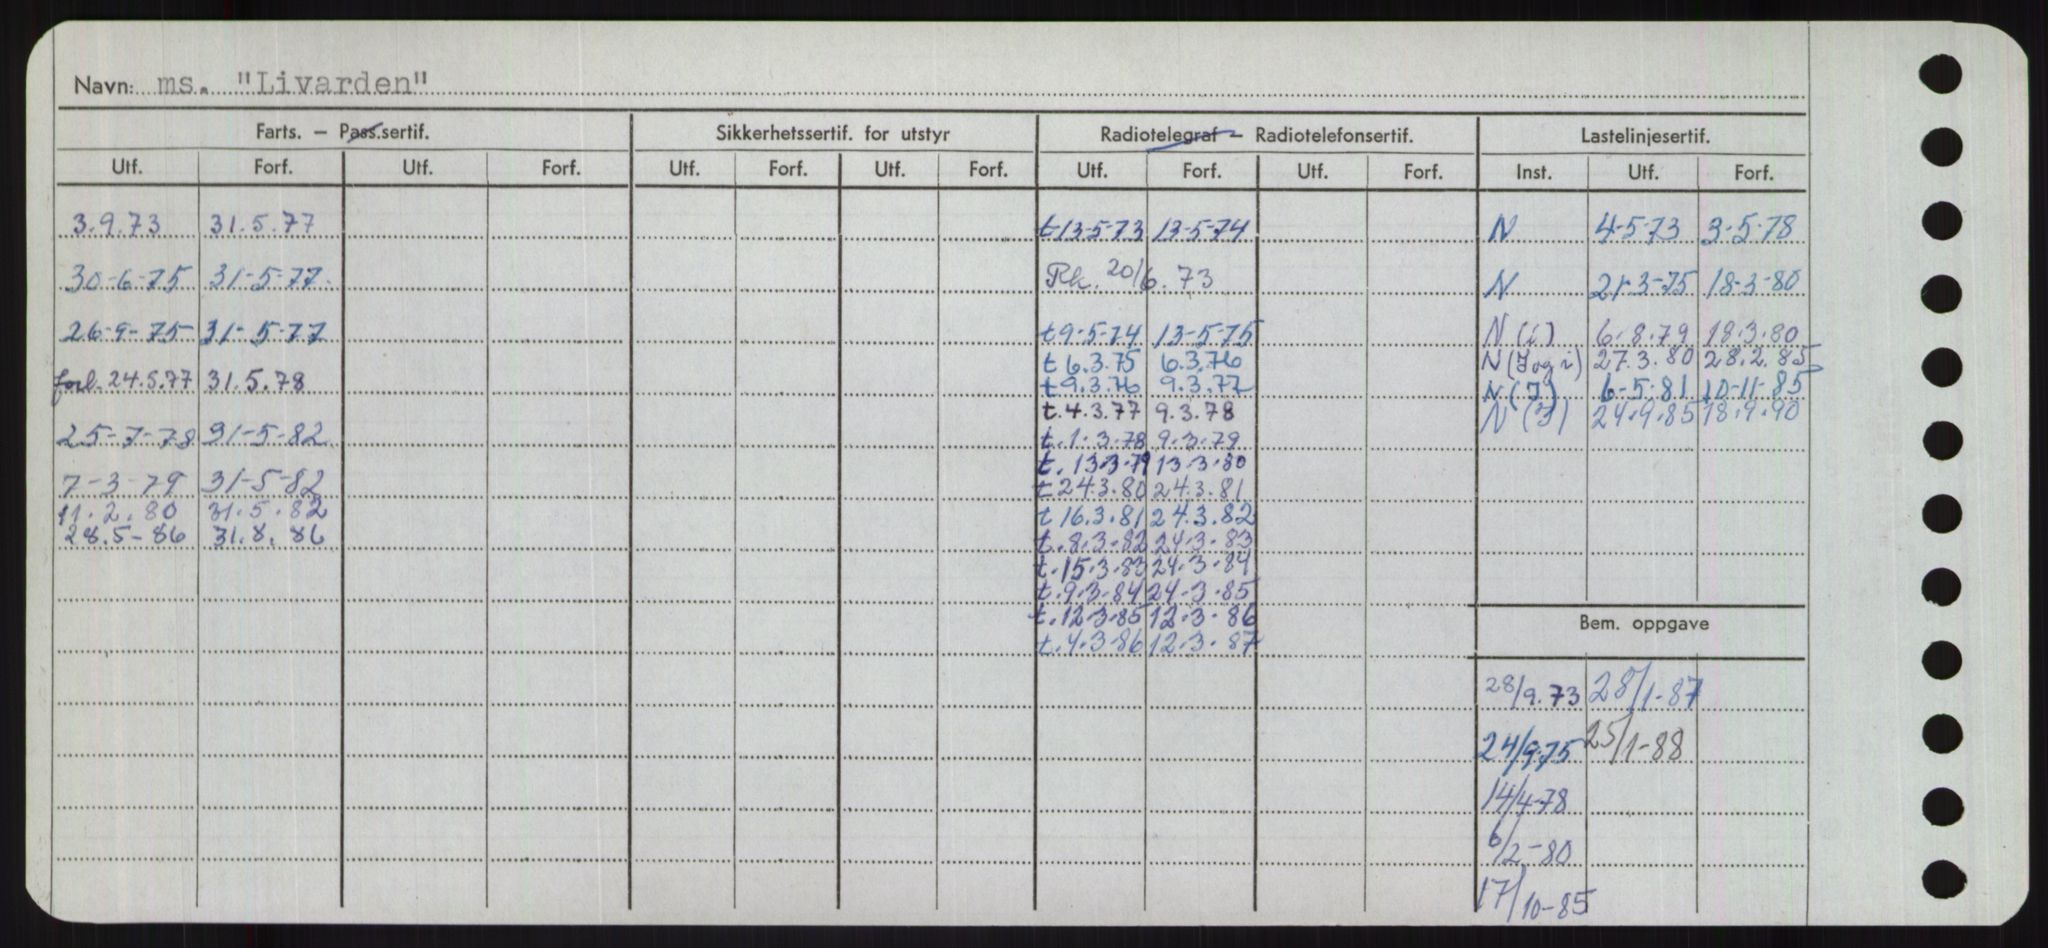 Navn: ms. "Livarden"
Farts. – Pass.sertif. Sikkerhetssertif. for utstyr Radiotelegraf – Radiotelefonsertif. Lastelinjesertif.
Utf. Forf. Utf. Forf. Utf. Forf. Utf. Forf. Utf. Forf. Utf. Forf. Inst. Utf. Forf.
3.9.73 31.5.77 t-13-5-73 13-5-74 N 4-5-73 3-5-78
30-6-75 31-5-77. Rk. 20/6.73 N 21-3-75 18-3-80
26-9-75 31-5-77 t9-5-74 13-5-75 N (i) 6.8.79 18.3.80
t 6.3.75 6.3.76 N (I og i) 27.3.80 28.2.85
forl. 24.5.77 31.5.78 t 9.3.76 9.3.77 N (I) 6-5-81 10-11-85
t.4.3.77 9.3.78 N (I) 24.9.85 18.9.90
25-7-78 31-5-82 t.1.3.78 9.3.79
t.13.3.79 13.3.80
7-3-79 31-5-82 t 24.3.80 24.3.81
11.2.80 31.5.82 t 16.3.81 24.3.82
28.5-86 31.8.86 t.8.3.82 24.3.83
t.15.3.83 24.3.84
t.9.3.84 24.3.85
t.12.3.85 12.3.86
t.4.3.86 12.3.87
Bem. oppgave
28/9.73 28/1-87
24/9.75 25/1-88
14/4-78
6/2-80
17/10-85